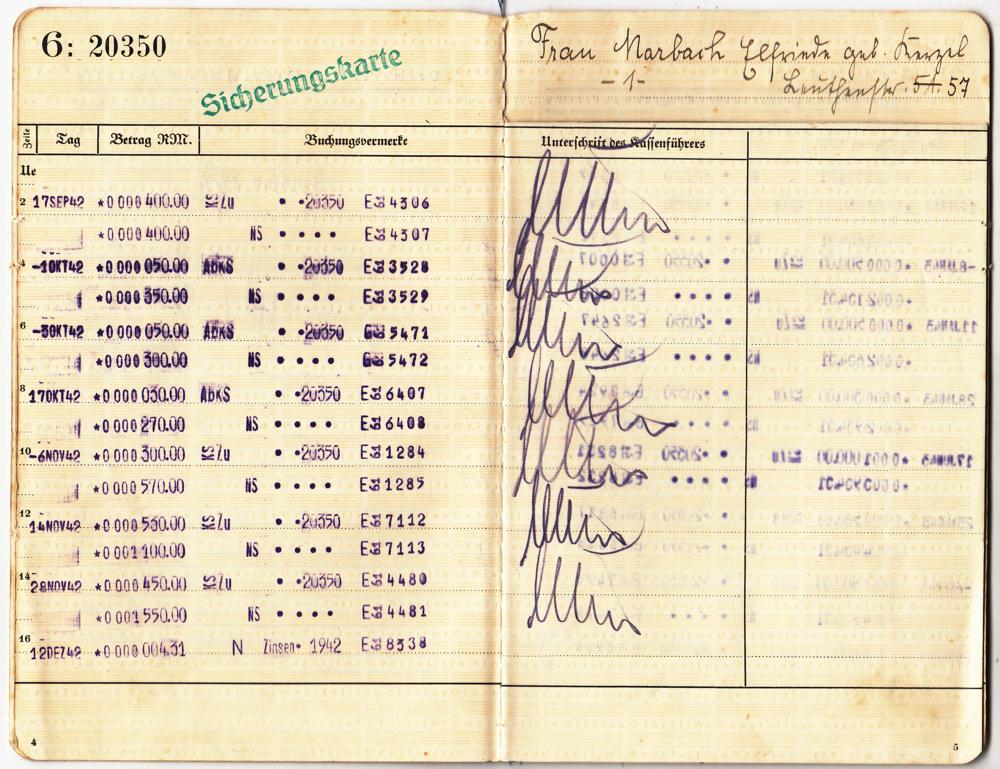 6: 20350
Sicherungskarte
Frau Marbach Elfriede geb. Kerzel
-1- Leuthenstr. 57
Zeile Tag Betrag RM. Buchungsvermerke Unterschrift des Kassenführers
Ue
2 17SEP42 *0000400.00 KS/u • •20350 4306
*0000400.00 NS • • • • 4307
4 -1OKT42 *0000050.00 AbKS • •20350 3528
*0000350.00 NS • • • • 3529
6 -3OKT42 *0000050.00 AbKS • •20350 5471
*0000300.00 NS • • • • 5472
8 17OKT42 *0000030.00 AbKS • •20350 6407
*0000270.00 NS • • • • 6408
10 -6NOV42 *0000300.00 KS/u • •20350 1284
*0000570.00 NS • • • • 1285
12 14NOV42 *0000530.00 KS/u • •20350 7112
*0001100.00 NS • • • • 7113
14 28NOV42 *0000450.00 KS/u • •20350 4480
*0001550.00 NS • • • • 4481
16 12DEZ42 *0000004.31 N Zinsen• 1942 8338
4
5